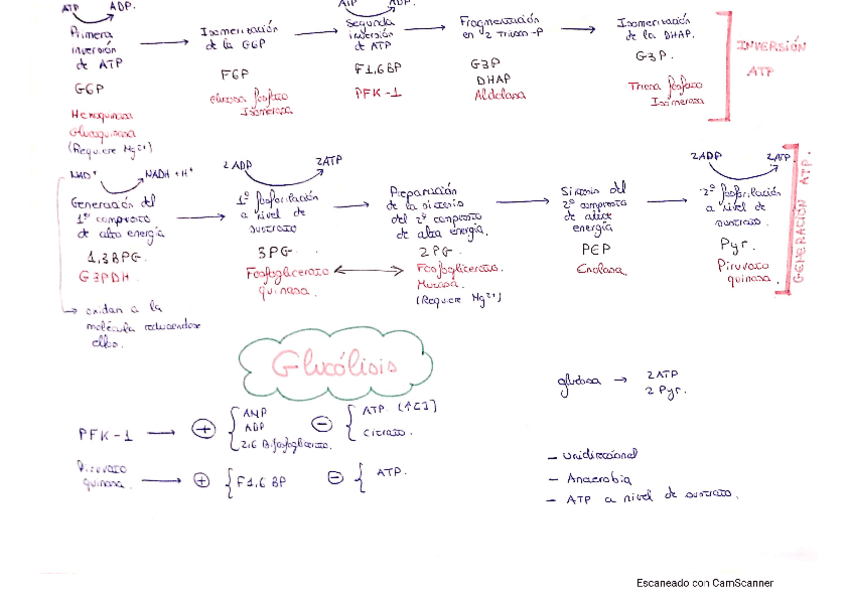 ATP ADP.
Primera
inversión
de ATP
G6P
Hexoquinasa
Glucoquinasa
(Requiere Mg²⁺)
Isomerización
de la G6P
F6P
Glucosa fosfato
Isomerasa
ATP ADP.
Segunda
inversión
de ATP
F1,6BP
PFK-1
Fragmentación
en 2 Triosas-P
G3P
DHAP
Aldolasa
Isomerización
de la DHAP.
G3P.
Triosa fosfato
Isomerasa
INVERSIÓN
ATP
NAD⁺ NADH + H⁺
Generación del
1º compuesto
de alta energía
1,3BPG.
G3PDH
oxidan a la
molécula reduciendose
ellos.
2ADP 2ATP
1º fosforilación
a nivel de
sustrato
3PG
Fosfoglicerato
quinasa.
Preparación
de la síntesis
del 2º compuesto
de alta energía.
2PG
Fosfoglicerato
Mutasa.
(Requiere Mg²⁺)
Síntesis del
2º compuesto
de alta
energía
PEP
Enolasa
2ADP 2ATP
2º fosforilación
a nivel de
sustrato.
Pyr.
Piruvato
quinasa.
GENERACIÓN ATP.
Glucólisis
glucosa → 2ATP
2 Pyr.
PFK-1 → + { AMP
ADP
2,6 Bifosfoglicerato.
- { ATP (↑CI)
Citrato.
Piruvato
quinasa → + { F1,6 BP - { ATP.
- Unidireccional
- Anaerobia
- ATP a nivel de sustrato.
Escaneado con CamScanner